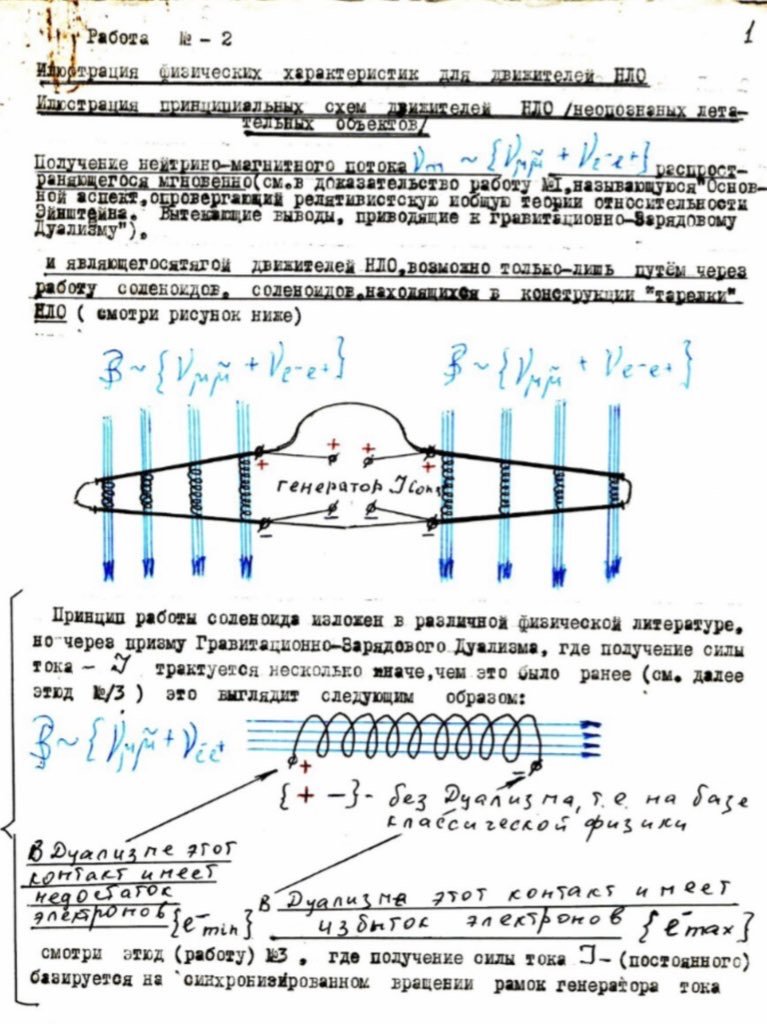 1
Работа № - 2
Илюстрация физических характеристик для движителей НЛО
Илюстрация принципиальных схем движителей НЛО /неопознаных лета-
тельных объектов/
Получение нейтрино-магнитного потока νm ~ {νμμ̃ + νe-e+} распрост-
раняющегося мгновенно(см.в доказательство работу №I,называющуюся"Основ-
ной аспект,опровергающий релятивистскую иобщую теории относительности
Эйнштейна. Вытекающие выводы, приводящие к гравитационно-Зарядовому
Дуализму").
и являющегосятягой движителей НЛО,возможно только-лишь путём через
работу соленоидов, соленоидов,находящихся в конструкции "тарелки"
НЛО ( смотри рисунок ниже)
B ~ {νμμ̃ + νe-e+} B ~ {νμμ̃ + νe-e+}
+ + + +
генератор Iconst
- - - -
Принцип работы соленоида изложен в различной физической литературе,
но через призму Гравитационно-Зарядового Дуализма, где получение силы
тока - I трактуется несколько иначе,чем это было ранее (см. далее
этюд №/3 ) это выглядит следующим образом:
B ~ {νμμ̃ + νe-e+
+ -
{+ -}- без Дуализма, т.е. на базе
классической физики
В Дуализме этот
контакт имеет
недостаток
электронов {e-min}
В Дуализме этот контакт имеет
избыток электронов {e-max}
смотри этюд (работу) №3 , где получение силы тока I- (постоянного)
базируется на синхронизированном вращении рамок генератора тока